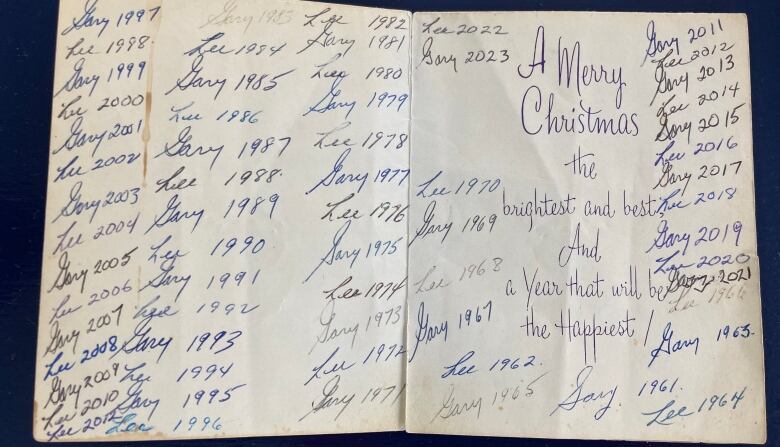 Gary 1997
Lee 1998
Gary 1999
Lee 2000
Gary 2001
Lee 2002
Gary 2003
Lee 2004
Gary 2005
Lee 2006
Gary 2007
Lee 2008
Gary 2009
Lee 2010
Lee 2012
Gary 1983
Lee 1984
Gary 1985
Lee 1986
Gary 1987
Lee 1988
Gary 1989
Lee 1990
Gary 1991
Lee 1992
Gary 1993
Lee 1994
Gary 1995
Lee 1996
Lee 1982
Gary 1981
Lee 1980
Gary 1979
Lee 1978
Gary 1977
Lee 1976
Gary 1975
Lee 1974
Gary 1973
Lee 1972
Gary 1971
Lee 2022
Gary 2023
Lee 1970
Gary 1969
Lee 1968
Gary 1967
Lee 1962.
Gary 1965
A Merry
Christmas
the
brightest and best,
And
a Year that will be
the Happiest!
Gary 1961.
Gary 2011
Lee 2012
Gary 2013
Lee 2014
Gary 2015
Lee 2016
Gary 2017
Lee 2018
Gary 2019
Lee 2020
Gary 2021
Lee 1966
Gary 1963.
Lee 1964